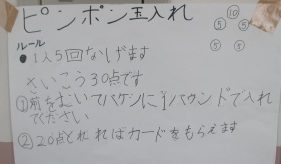 ピンポン玉入れ
⑩
⑤ ⑤
⑤ ⑤
ルール
●1人5回なげます
さいこう30点です
①前をむいてバケツに1バウンドで入れ
てください
②20点とれればカードをもらえます